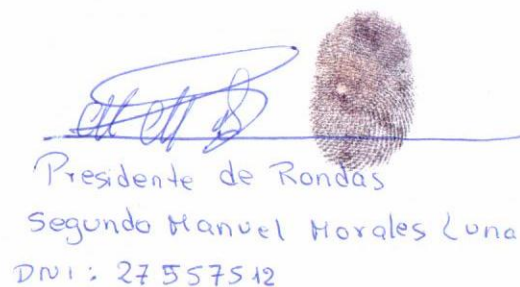 Presidente de Rondas
Segundo Manuel Morales Luna
DNI: 27557512